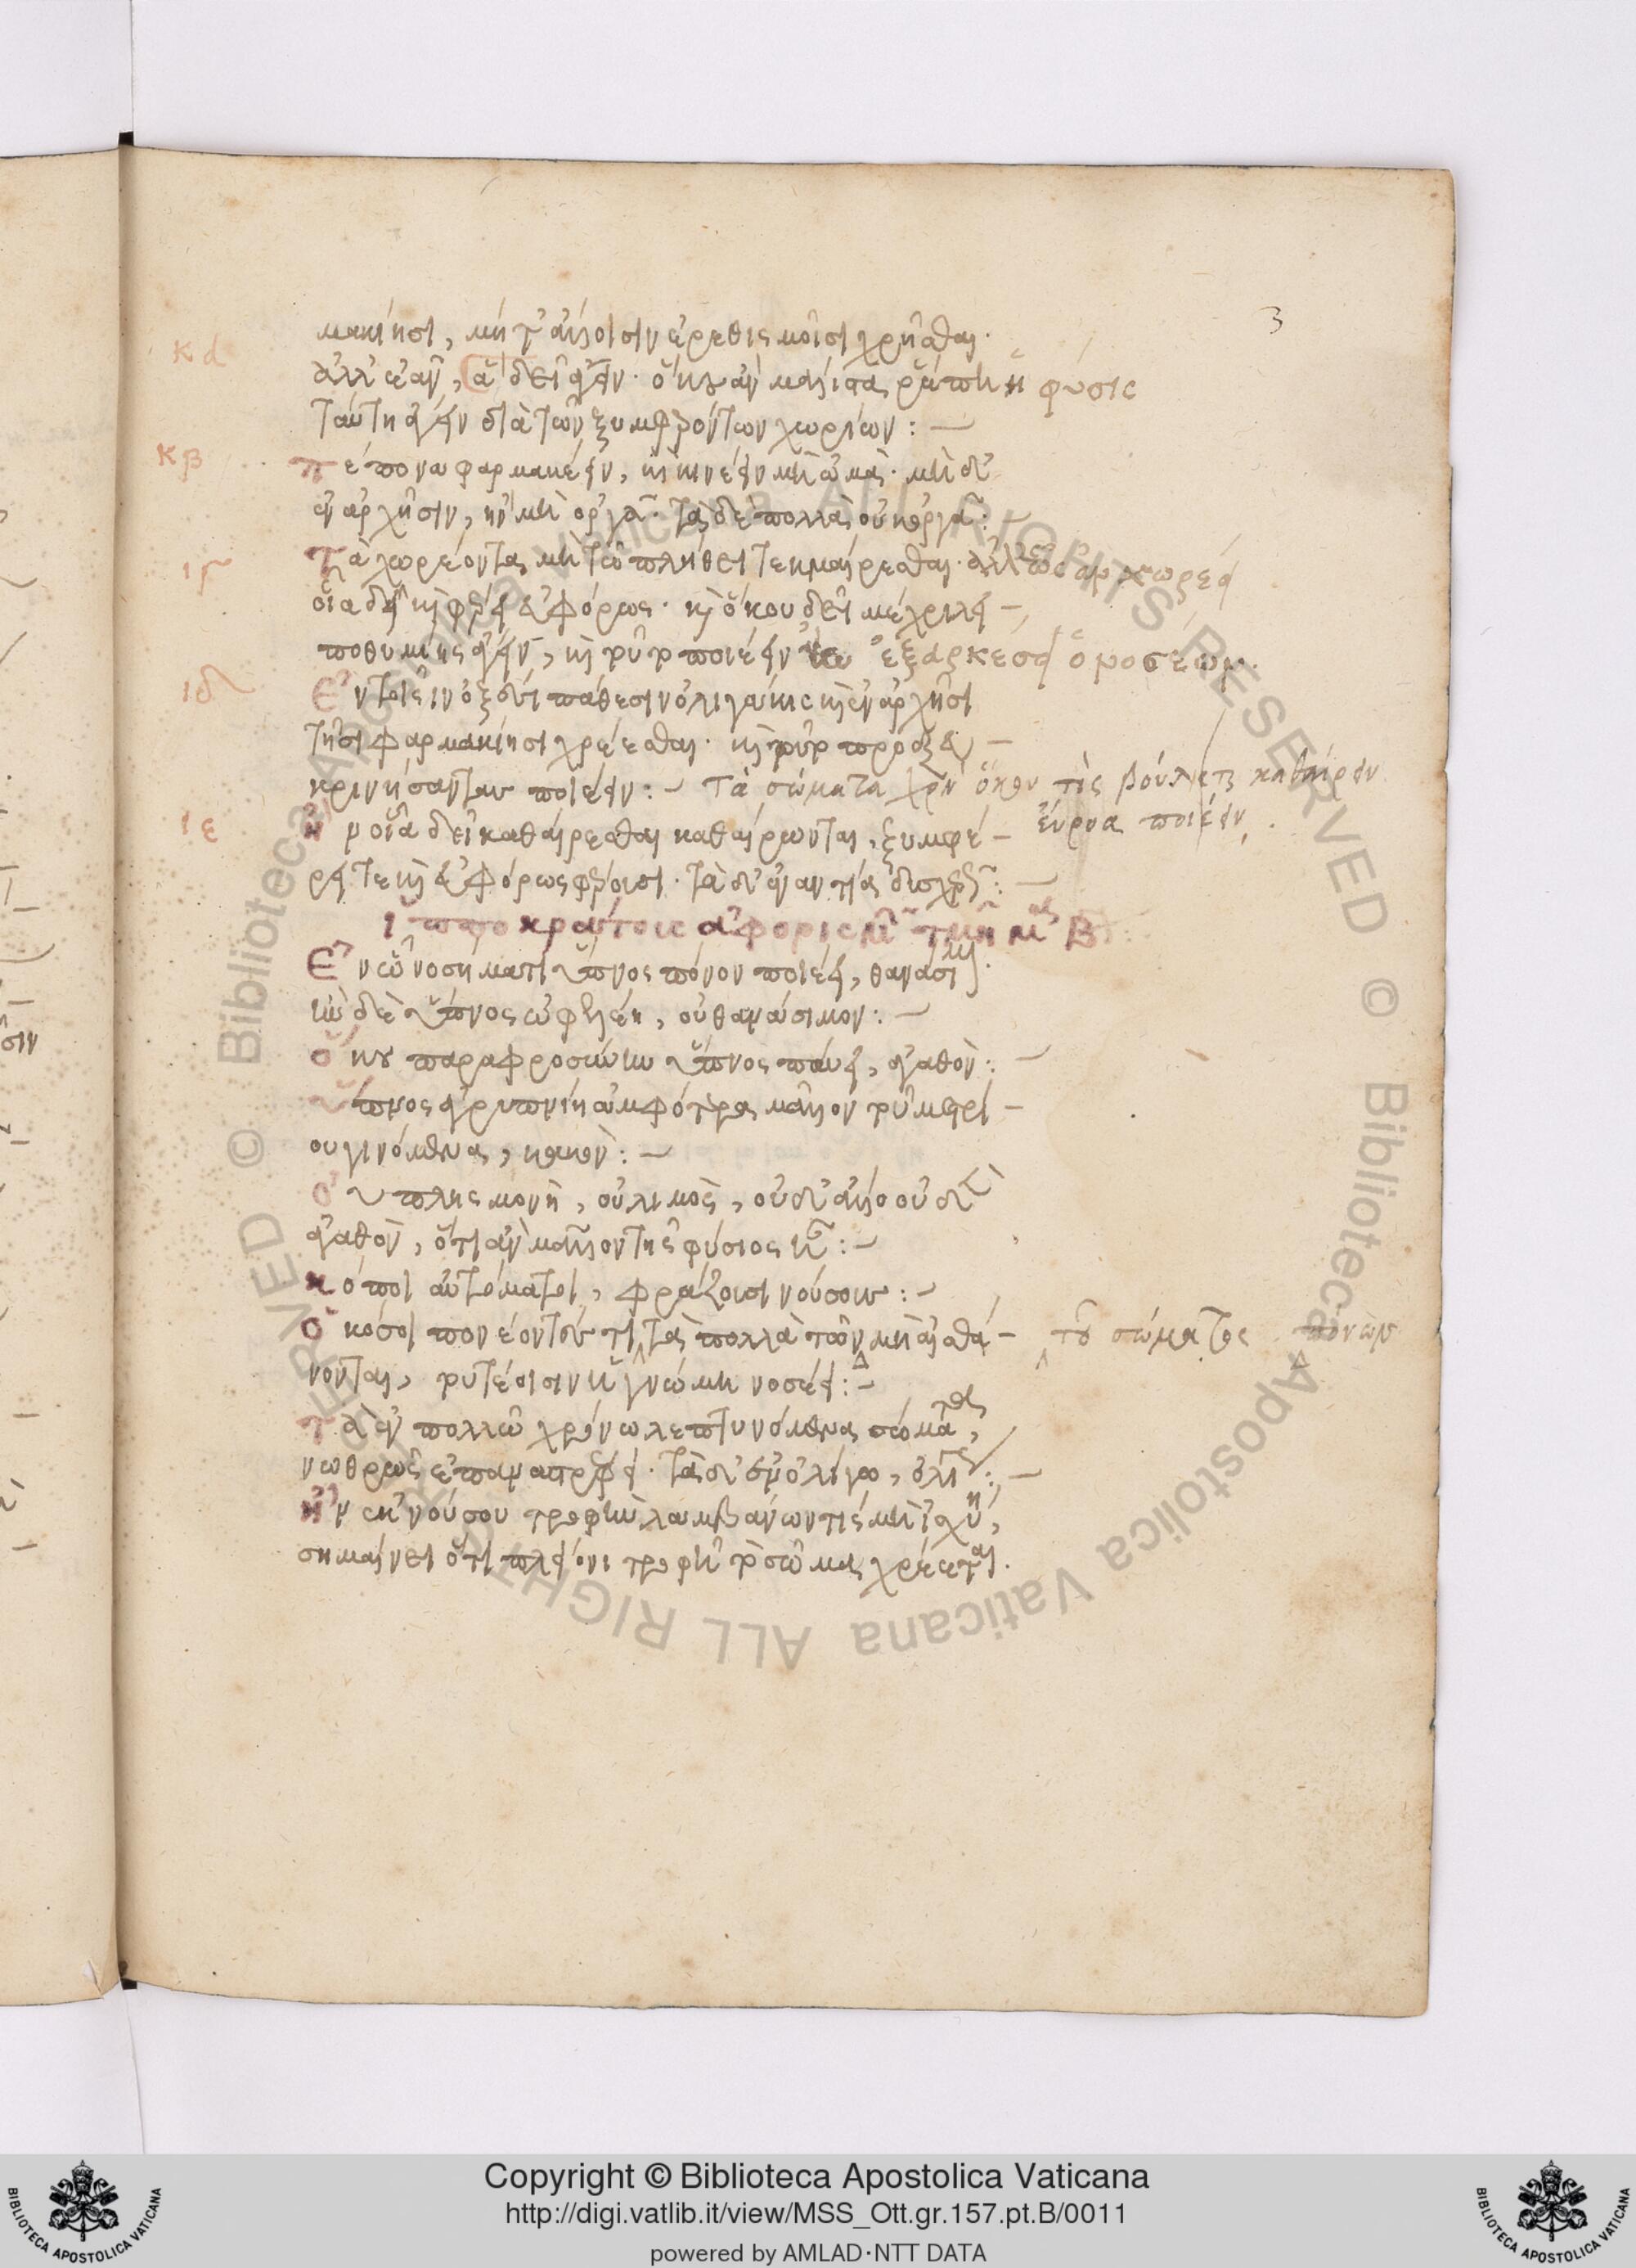 3
μακίῃσι, μήτ' ἄλλοισιν ἐρεθισμοῖσι χρῆσθαι·
κα
ἀλλ' ἐᾶν, ἃ δεῖ ἄγειν· ὅκη ἂν μάλιστα ῥέπῃ ἡ φύσις
ταύτῃ ἄγειν διὰ τῶν ξυμφερόντων χωρίων: —
κβ
πέπονα φαρμακεύειν, καὶ κινέειν μὴ ὠμά· μὴ δ'
ἐν ἀρχῇσιν, ἢν μὴ ὀργᾷ· τὰ δὲ πολλὰ οὐκ ὀργᾷ: —
ιγ
τὰ χωρέοντα, μὴ τῷ πλήθει τεκμαίρεσθαι· ἀλλ' ἕως ἂν χωρέει
οἷα δεῖ καὶ φέρει εὐφόρως· καὶ ὅκου δεῖ μέχρι λει—
ποθυμίης ἄγειν, καὶ τοῦτο ποιέειν ἐξαρκέσει ὁ νοσέων.
ιδ
Ἐν τοῖσιν ὀξέσι πάθεσιν ὀλιγάκις καὶ ἐν ἀρχῇσι
τῇσι φαρμακίῃσι χρέεσθαι· καὶ τοῦτο προεξευ—
κρινήσαντας ποιέειν: — τὰ σώματα χρὴ ὅκου τὶς βούλεται καθαίρειν
εὔροα ποιέειν
ιε
ἢν οἷα δεῖ καθαίρεσθαι καθαίρωνται, ξυμφέ—
ρει τε καὶ εὐφόρως φέρουσι· τὰ δ' ἐναντία, δυσχερῶς: —
ἱπποκράτους ἀφορισμῶν τμῆμα β
Ἐν ᾧ νοσήματι ὕπνος πόνον ποιέει, θανάσιμον·
ἢν δὲ ὕπνος ὠφελέῃ, οὐ θανάσιμον: —
ὅκου παραφροσύνην ὕπνος παύει, ἀγαθόν: —
ὕπνος ἀγρυπνίη ἀμφότερα μᾶλλον τοῦ μετρί—
ου γινόμενα, κακόν: —
οὐ πλησμονή, οὐ λιμός, οὐδ' ἄλλο οὐδὲν
ἀγαθόν, ὅτι ἂν μᾶλλον τῆς φύσιος ᾖ: —
κόποι αὐτόματοι, φράζουσι νούσους: —
ὁκόσοι πονέοντές τι τὰ πολλὰ τῶν μὴ αἰσθά— τοῦ σώματος πόνων
νονται, τουτέοισιν ἡ γνώμη νοσέει: —
τὰ ἐν πολλῷ χρόνῳ λεπτυνόμενα σώματα,
νωθρῶς ἐπανατρέφει· τὰ δ' ἐν ὀλίγῳ, ὀλίγως: —
ἢν ἐκ νούσου τροφὴν λαμβάνων τις μὴ ἰσχύῃ,
σημαίνει ὅτι πλείονι τροφῇ τὸ σῶμα χρέεται.
Copyright © Biblioteca Apostolica Vaticana
http://digi.vatlib.it/view/MSS_Ott.gr.157.pt.B/0011
powered by AMLAD·NTT DATA